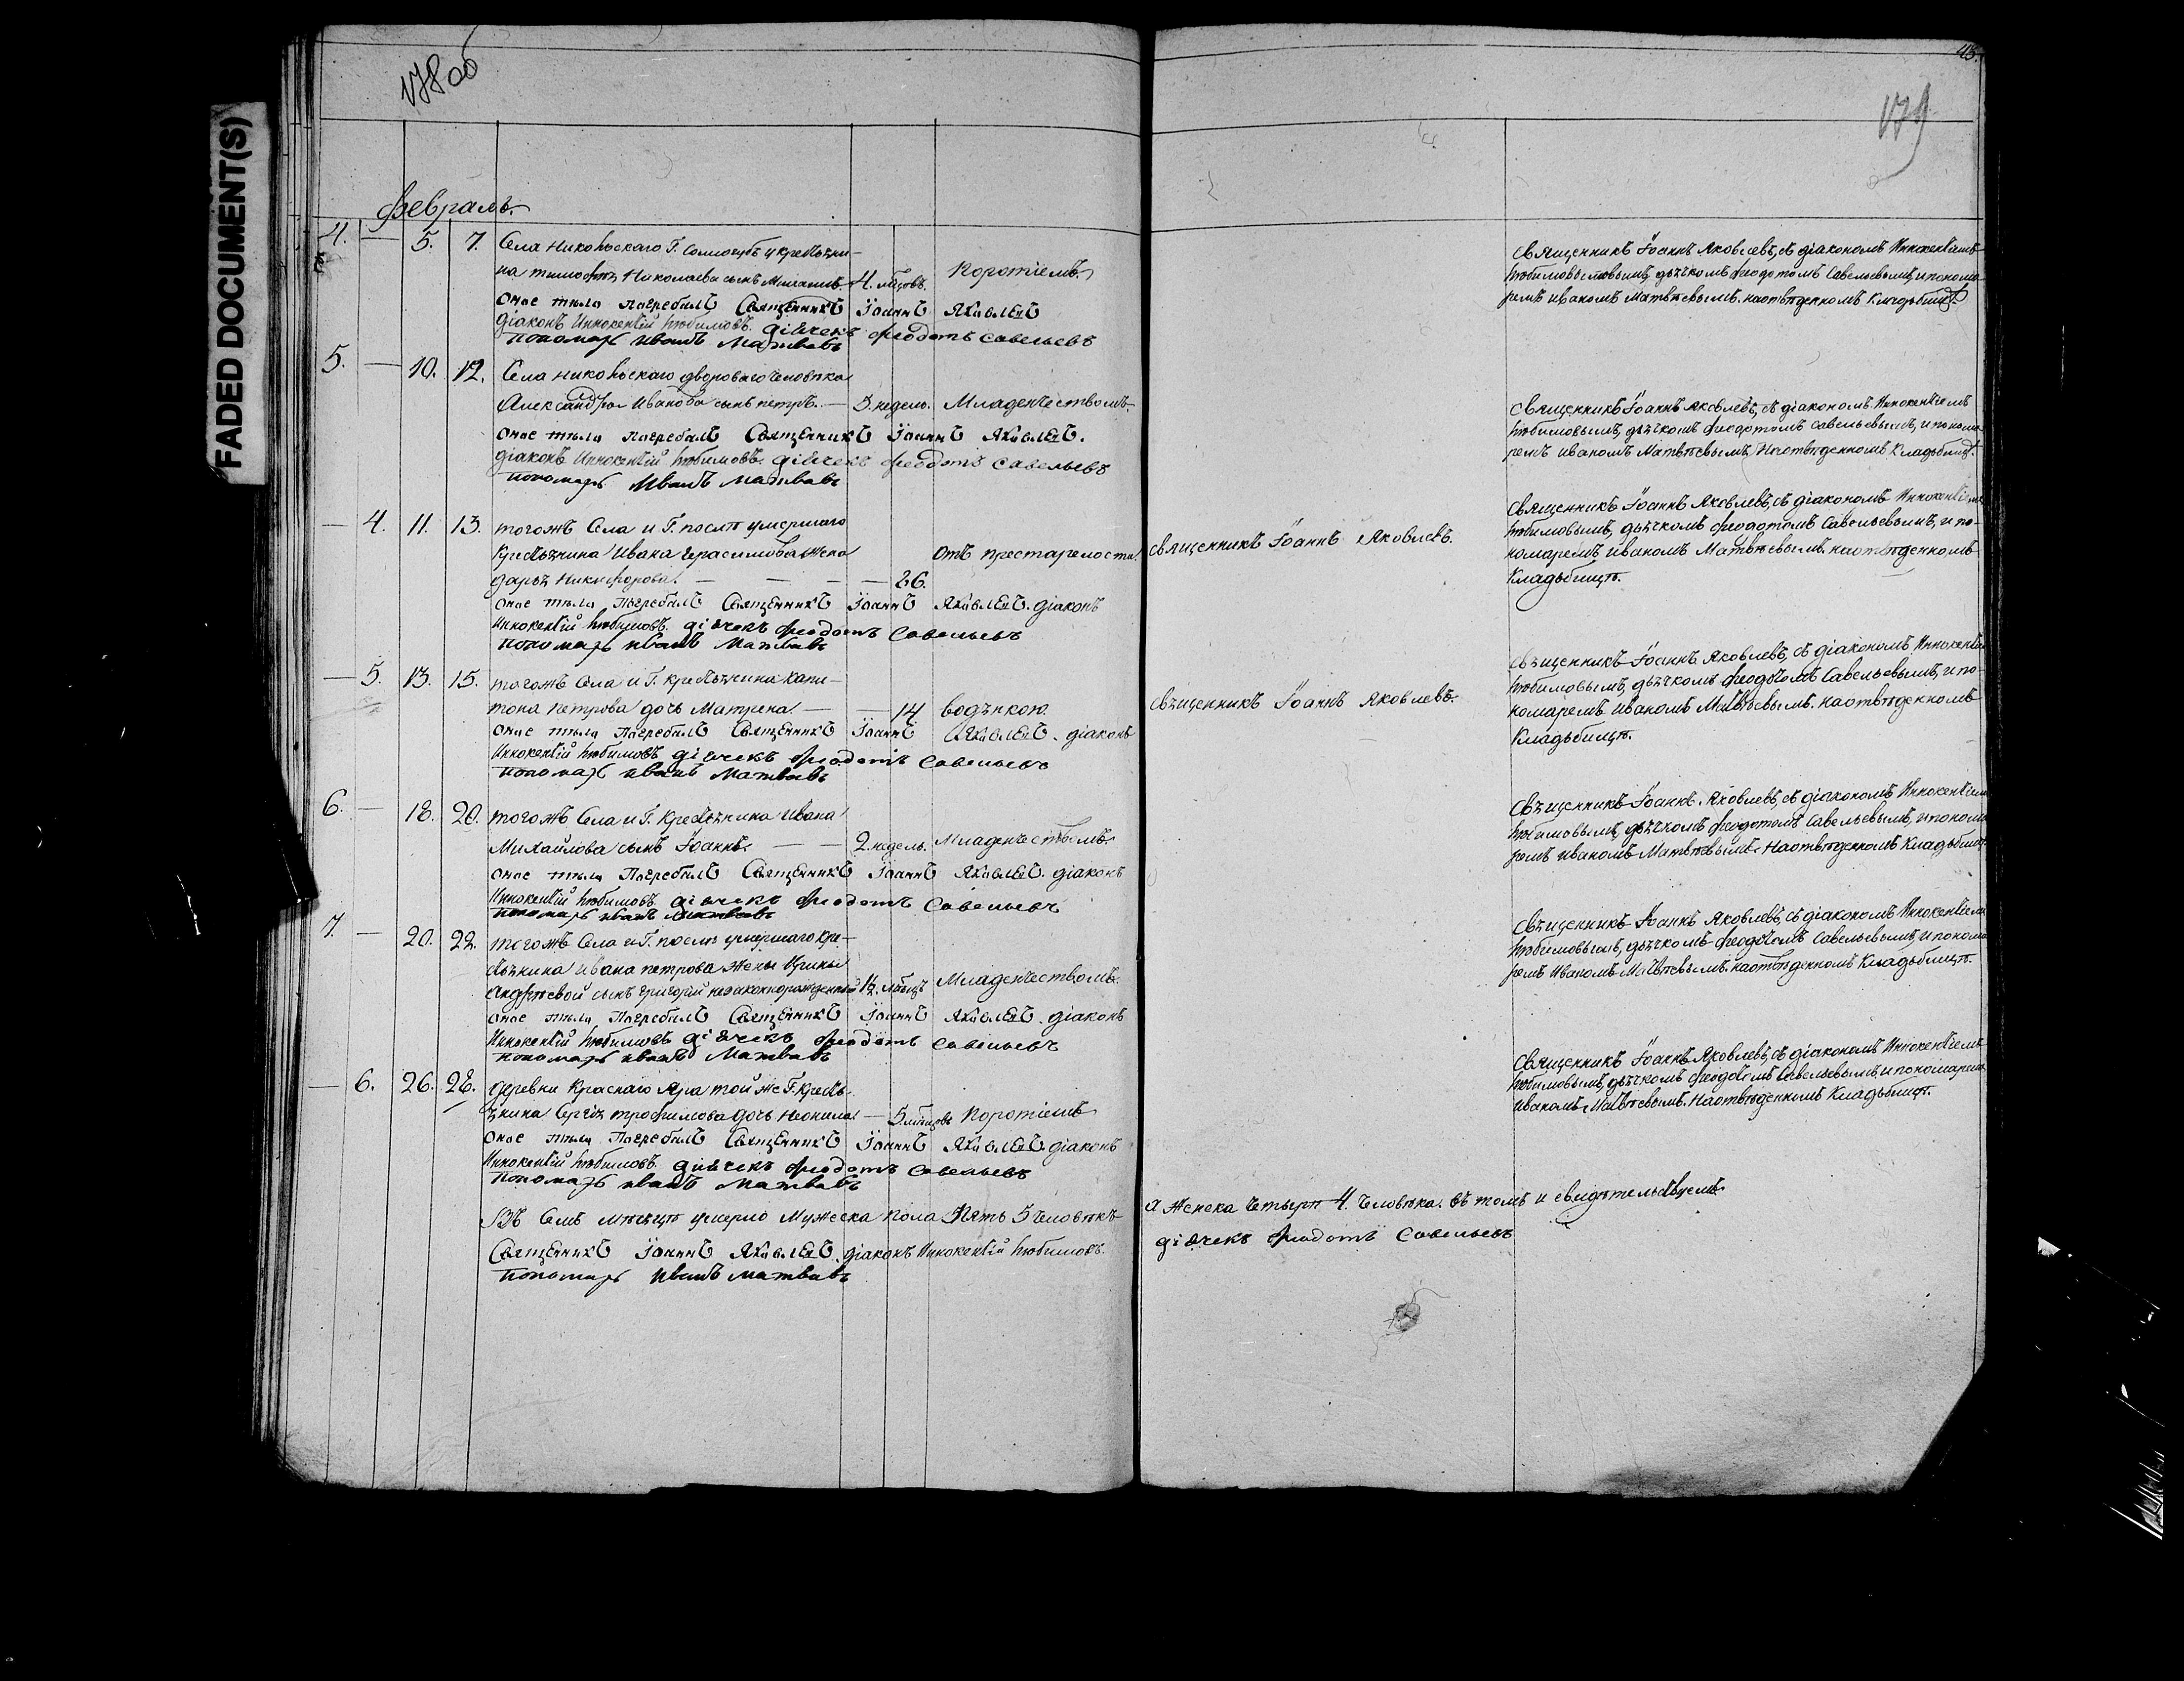 FADED DOCUMENT(S)
178 об
43.
179
Февраль.
4. — 5. 7. Села Никольскаго Г. Сологубъ у крестьяни-
на тимофея Николаева сынъ 4. мѣсов. Коротіемъ.
оное тѣло погребалъ Священникъ Іоаннъ Яковлевъ
діаконъ Иннокентій Любимовъ. дiячекъ Феодотъ Савельевъ
пономарь иванъ Матвѣевъ
Священникъ Іоаннъ Яковлевъ, съ діакономъ Иннокентіемъ
Любимовымъ, дьячкомъ Феодотомъ Савельевымъ, и понома-
ремъ иваномъ Матвѣевымъ. на отвѣденномъ Кладьбищѣ.
5. — 10. 12. Села никольскаго двороваго человѣка
Александра Иванова сынъ петръ. — 3. недель. Младенчествомъ.
оное тѣло погребалъ Священникъ Іоаннъ Яковлевъ.
діаконъ Иннокентій Любимовъ. дiячекъ Феодотъ Савельевъ
пономарь Иванъ Матвѣевъ
Священникъ Іоаннъ Яковлевъ, съ діакономъ Иннокентіемъ
Любимовымъ, дьячкомъ Феодотомъ Савельевымъ, и понома-
ремъ иваномъ Матвѣевымъ, На отвѣденномъ Кладьбищѣ.
— 4. 11. 13. тогожъ Села и Г. послѣ умершаго
крестьянина Ивана Герасимова жена
дарья Никифорова. — — — 26. отъ престарелости.
оное тѣло погребалъ Священникъ Іоаннъ Яковлевъ. діаконъ
Иннокентій Любимовъ. дiячекъ Феодотъ Савельевъ
пономарь иванъ Матвѣевъ
священникъ Іоаннъ Яковлевъ.
Священникъ Іоаннъ Яковлевъ, съ діакономъ Иннокентіемъ
Любимовымъ, дьячкомъ Феодотомъ Савельевымъ, и по-
номаремъ иваномъ Матвѣевымъ. на отвѣденномъ
Кладьбищѣ.
— 5. 13. 15. тогожъ Села и Г. крестьянина Капи-
тона петрова дочь Матрена. — — 14. водянкою.
оное тѣло Погребалъ Священникъ Іоаннъ Яковлевъ. діаконъ
Иннокентій Любимовъ дiячекъ Феодотъ Савельевъ
пономарь иванъ Матвѣевъ
священникъ Іоаннъ Яковлевъ.
Священникъ Іоаннъ Яковлевъ, съ діакономъ Иннокентіем
Любимовымъ, дьячкомъ Феодотомъ Савельевымъ, и по-
номаремъ иваномъ Матвѣевымъ. на отвѣденномъ
Кладьбищѣ.
6. — 18. 20. тогожъ Села и Г. Крестьянина Ивана
Михайлова сынъ Іоаннъ. — — 2. недель. Младенчествомъ.
оное тѣло Погребалъ Священникъ Іоаннъ Яковлевъ. діаконъ
Иннокентій Любимовъ дiячекъ Феодотъ Савельевъ
пономарь иванъ Матвѣевъ
Священникъ Іоаннъ Яковлевъ, съ діакономъ Иннокентіем
Любимовымъ, дьячкомъ Феодотомъ Савельевымъ, и понома
ремъ иваномъ Матвѣевымъ. На отвѣденномъ Кладьбищѣ
7. — 20. 22. тогожъ Села и Г. послѣ умершаго кре-
стьянина Ивана петрова жены Ирины
Андреевой сынъ Григорій незаконнорожденный 1½. мѣсяцъ Младенчествомъ.
оное тѣло Погребалъ Священникъ Іоаннъ Яковлевъ. діаконъ
Иннокентій Любимовъ дiячекъ Феодотъ Савельевъ
пономарь иванъ Матвѣевъ
Священникъ Іоаннъ Яковлевъ, съ діакономъ Иннокентіем
Любимовымъ, дьячкомъ Феодотомъ Савельевымъ, и понома
ремъ Иваномъ Матвѣевымъ. на отвѣденномъ Кладьбищѣ.
— 6. 26. 28. деревни Краснаго Яра той же Г. кресть-
янина Сергѣя трофимова дочь Неонила — 5. мѣсяцовъ Коротіемъ
оное тѣло Погребалъ Священникъ Іоаннъ Яковлевъ. діаконъ
Иннокентій Любимовъ. дiячекъ Феодотъ Савельевъ
пономарь иванъ Матвѣевъ
Священникъ Іоаннъ Яковлевъ, съ діакономъ Иннокентіемъ
Любимовымъ, дьячкомъ Феодотомъ Савельевымъ, и пономарем
иваномъ Матвѣевымъ. На отвѣденномъ Кладьбищѣ.
Въ Семъ мѣсяцѣ умерло Мужеска пола Пять 5 человѣкъ а Женска Четыре 4. Человѣка. въ томъ и свидѣтельствуемъ
Священникъ Іоаннъ Яковлевъ. діаконъ Иннокентій Любимовъ. дiячекъ Феодотъ Савельевъ
пономарь иванъ матвѣевъ